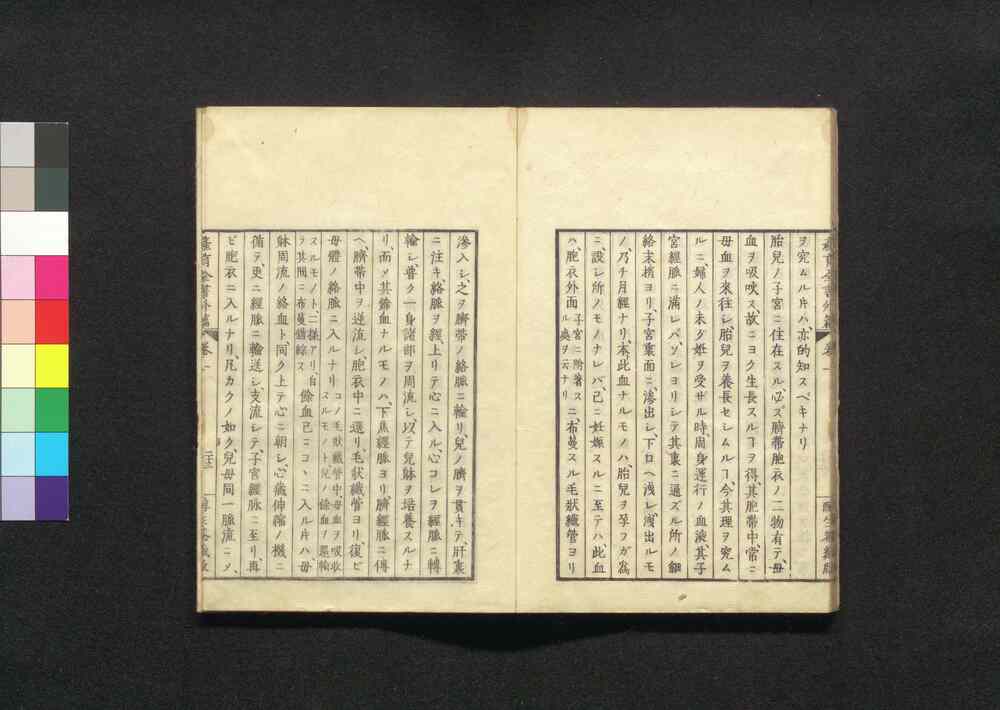 ヲ究ムル片ハ亦的知スベキナリ
胎兒ノ子宮ニ住在スル、必ズ臍帶胞衣ノ二物有テ、母
血ヲ吸吮ス、故ニヨク生長スルヿヲ得、其胞帶中、常ニ
母血ヲ來往シ、胎兒ヲ養長セシムルヿ、今其理ヲ究ム
ルニ、婦人ノ未ダ姙ヲ受ザル時、周身運行ノ血液、其子
宮經脈ニ滿レバ、ソレヨリシテ其裏ニ通ズル所ノ細
絡末梢ヨリ、子宮裏面ニ滲出シ、下口ヘ洩レ出ルモ
ノ、乃チ月經ナリ、本此血ナルモノハ、胎兒ヲ孕フガ爲
ニ設シ所ノモノナレバ、已ニ妊娠スルニ至テハ、此血
ハ胞衣外面 子宮ニ附著ス ル處ヲ云ナリ ニ布蔓スル毛狀纖管ヨリ
滲入シ、之ヲ臍帶ノ絡脈ニ輸リ、兒ノ臍ヲ貫キテ、肝裏
ニ注キ、絡脈ヲ經、上リテ心ニ入ル、心コレヲ經脈ニ轉
輸シ、普ク一身諸部ヲ周流シ、以テ兒躰ヲ培養スルナ
リ、而メ其餘血ナルモノハ、下焦經脈ヨリ、臍經脈ニ傳
ヘ、臍帶中ヲ逆流シ、胞衣中ニ還リ、毛狀纖管ヨリ、復ビ
母體ノ絡脈ニ入ルナリ コノ毛狀纖管中、母血ヲ吸收 スルモノト、兒ノ餘血ヲ還輸
スルモノト、二樣アリ、自 ラ其間ニ布蔓錯綜ス 餘血已ニコヽニ入ル片ハ、母
躰周流ノ絡血ト、同ク上テ心ニ朝シ、心臟伸縮ノ機ニ
備テ、更ニ經脈ニ輸送シ、支流シテ子宮經脈ニ至リ、再
ビ胞衣ニ入ルナリ、凡カクノ如ク、兒母同一脈流ニメ、